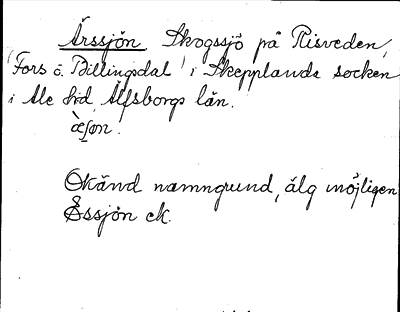 Ärssjön Skogssjö på Risveden,
"Fors ö. Billingsdal" i Skepplanda socken
i Ale hd, Älfsborgs län.
Okänd namngrund, älg möjligen
Essjön ek.